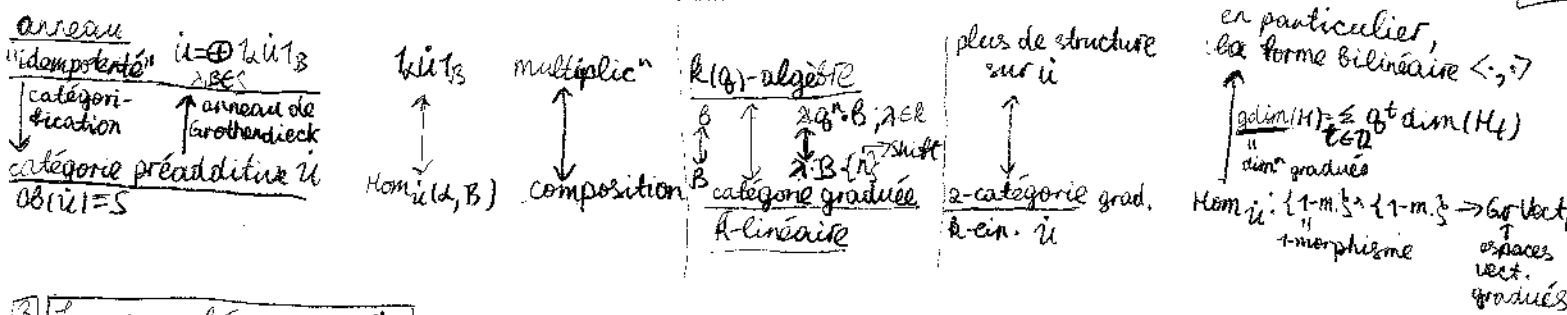 anneau
"idempotenté" u̇ = ⊕ 1_α u̇ 1_β
α,β∈S
catégori-
fication
anneau de
Grothendieck
catégorie préadditive U̇
Ob(u̇)=S
1_α u̇ 1_β
Hom_u̇(α, β)
multiplicⁿ
composition
k(q)-algèbre
β λqⁿ·β ; λ∈k
β λ·β·{n} → shift
catégorie graduée
k-linéaire
plus de structure
sur u̇
2-catégorie grad.
k-lin. u̇
en particulier,
la forme bilinéaire <·,·>
gdim(H) = Σ q^t dim(H_t)
t∈ℤ
dimⁿ graduée
Hom_u̇ : {1-m.} × {1-m.} → GrVect
1-morphisme
espaces
vect.
gradués